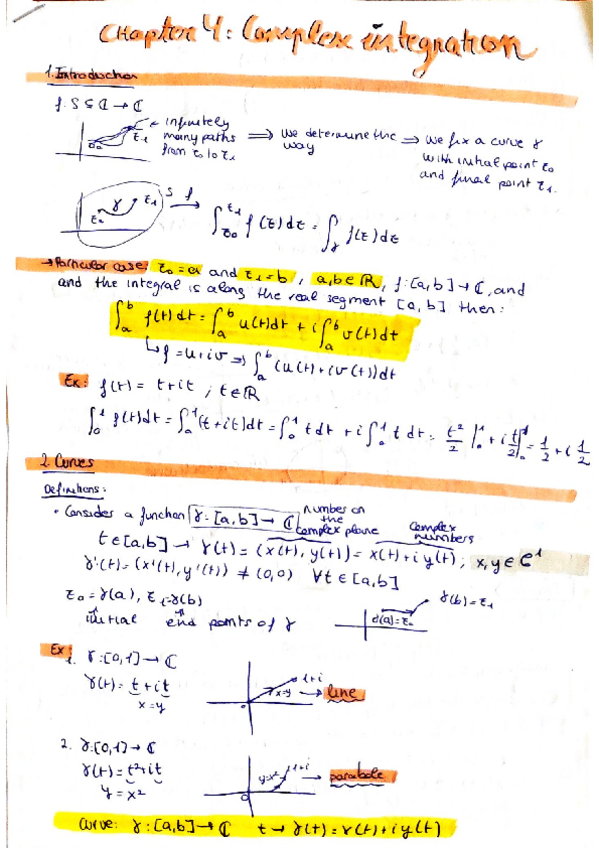 Chapter 4: Complex integration
1. Introduction
f: S ⊆ ℂ → ℂ
infinitely many paths from z₀ to z₁ ⟹ we determine the way ⟹ we fix a curve γ with initial point z₀ and final point z₁.
z₀ z₁
z₀ γ z₁ S f →
∫_{z₀}^{z₁} f(z)dz = ∫_γ f(z)dz
→ Particular case: z₀ = a and z₁ = b, a,b ∈ ℝ, f: [a,b] → ℂ, and
and the integral is along the real segment [a,b] then:
∫_a^b f(t)dt = ∫_a^b u(t)dt + i∫_a^b v(t)dt
↳ f = u+iv ⟹ ∫_a^b (u(t)+iv(t))dt
Ex: f(t) = t+it ; t∈ℝ
∫_0^1 f(t)dt = ∫_0^1 (t+it)dt = ∫_0^1 t dt + i∫_0^1 t dt = t²/2 |_0^1 + i t²/2 |_0^1 = 1/2 + i 1/2
2. Curves
Definitions:
• Consider a function γ: [a,b] → ℂ number on the complex plane complex numbers
t∈[a,b] → γ(t) = (x(t), y(t)) = x(t)+iy(t); x,y ∈ C¹
γ'(t) = (x'(t), y'(t)) ≠ (0,0) ∀t∈[a,b]
z₀ = γ(a), z₁ = γ(b)
initial end points of γ
γ(a)=z₀ γ(b)=z₁
Ex:
1. γ: [0,1] → ℂ
γ(t) = t+it
x=y
1+i x=y → line
2. γ: [0,1] → ℂ
γ(t) = t²+it
y = x²
0 y=x² 1+i → parabole
Curve: γ: [a,b] → ℂ t → γ(t) = x(t)+iy(t)